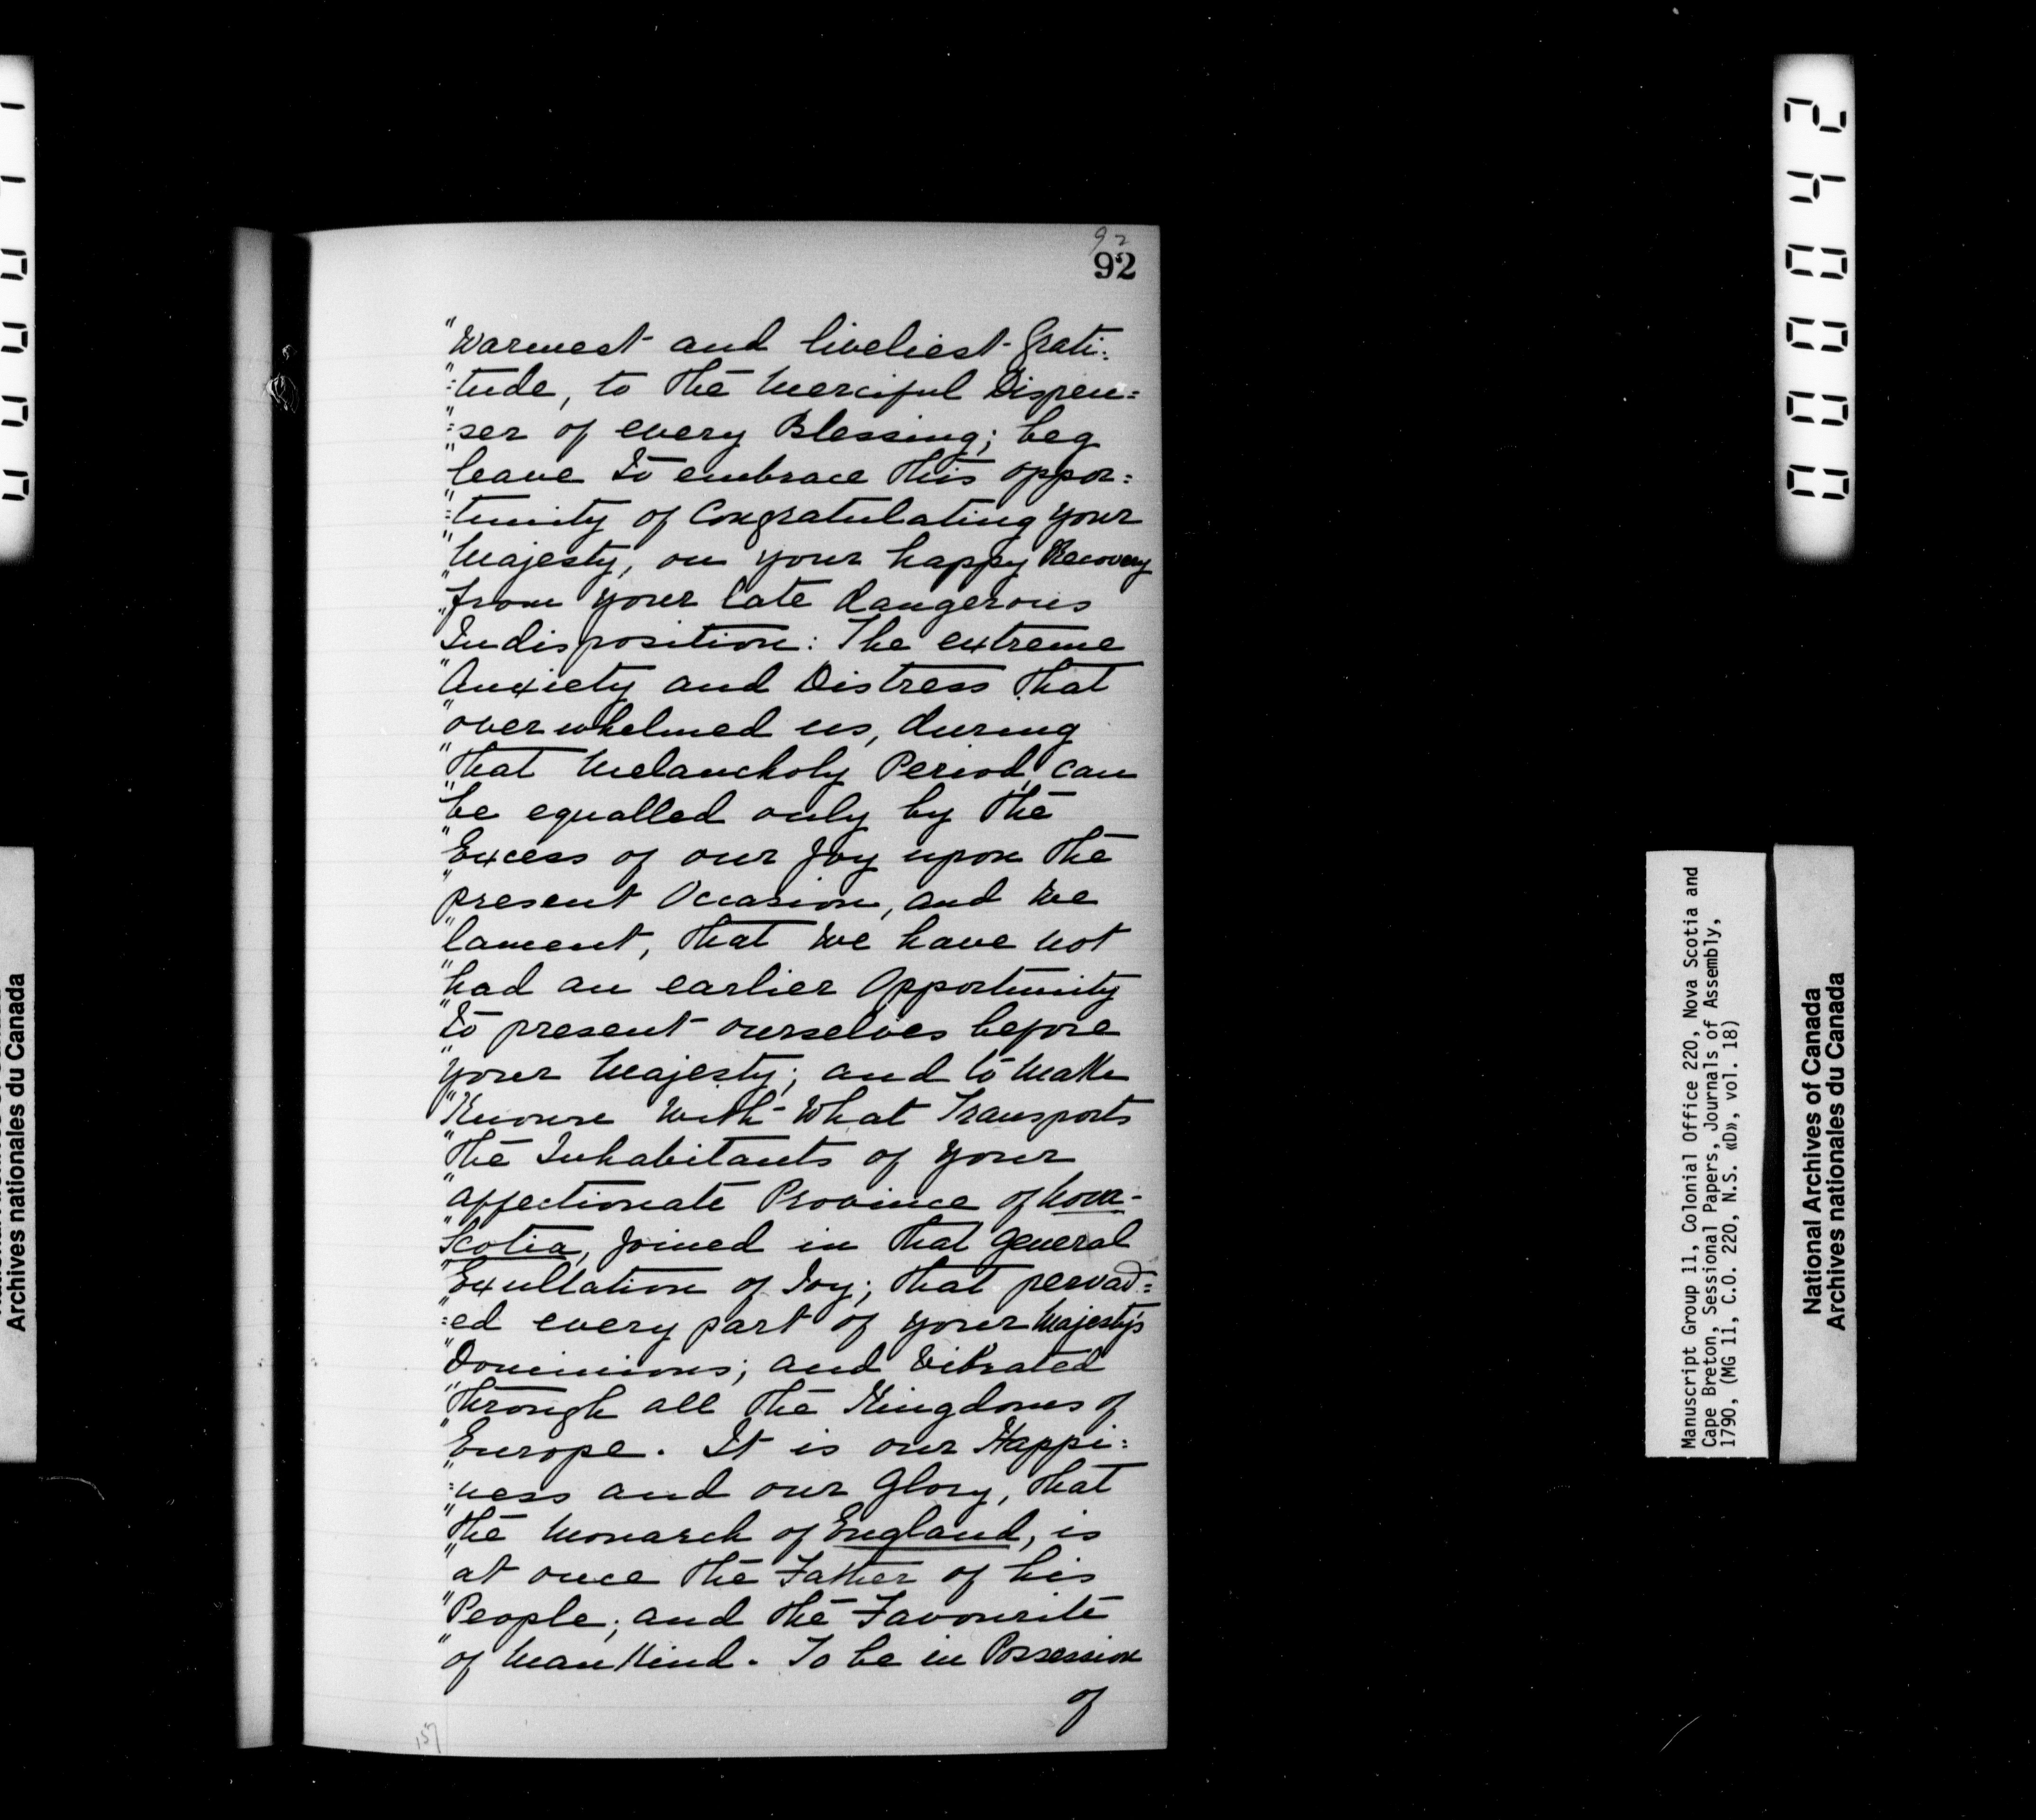 92
92
"Warmest and liveliest Grati:
":tude, to the Merciful Dispen:
":ser of every Blessing; beg
"leave to embrace this oppor:
":tunity of Congratulating your
"Majesty, on your happy Recovery
"from your late dangerous
Indisposition: The extreme
"Anxiety and Distress that
"overwhelmed us, during
"that Melancholy Period, can
"be equalled only by the
"Excess of our Joy upon the
"present Occasion, and We
"lament, that We have not
"had an earlier Opportunity
"to present ourselves before
"your Majesty; and to Make
"Known With What Transports
"the Inhabitants of your
"affectionate Province of Nova-
"Scotia, joined in that general
"Exultation of Joy; that pervad:
":ed every part of your Majesty's
"Dominions; and Vibrated
"through all the Kingdoms of
"Europe. It is our Happi:
":ness and our Glory, that
"the Monarch of England, is
"at once the Father of his
"People; and the Favourite
"of Mankind. To be in Possession
of
157
24000
Manuscript Group 11, Colonial Office 220, Nova Scotia and
Cape Breton, Sessional Papers, Journals of Assembly,
1790, (MG 11, C.O. 220, N.S. «D», vol. 18)
National Archives of Canada
Archives nationales du Canada
Archives nationales du Canada